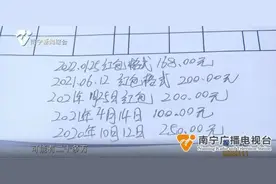 南宁广播电视台
2022.01.25 红包格式 168.00元
2021.06.12 红包格式 200.00元
2021年1月25日 红包 200.00元
2021年4月14日 100.00元
2020年10月12日 250.00元
南宁广播电视台